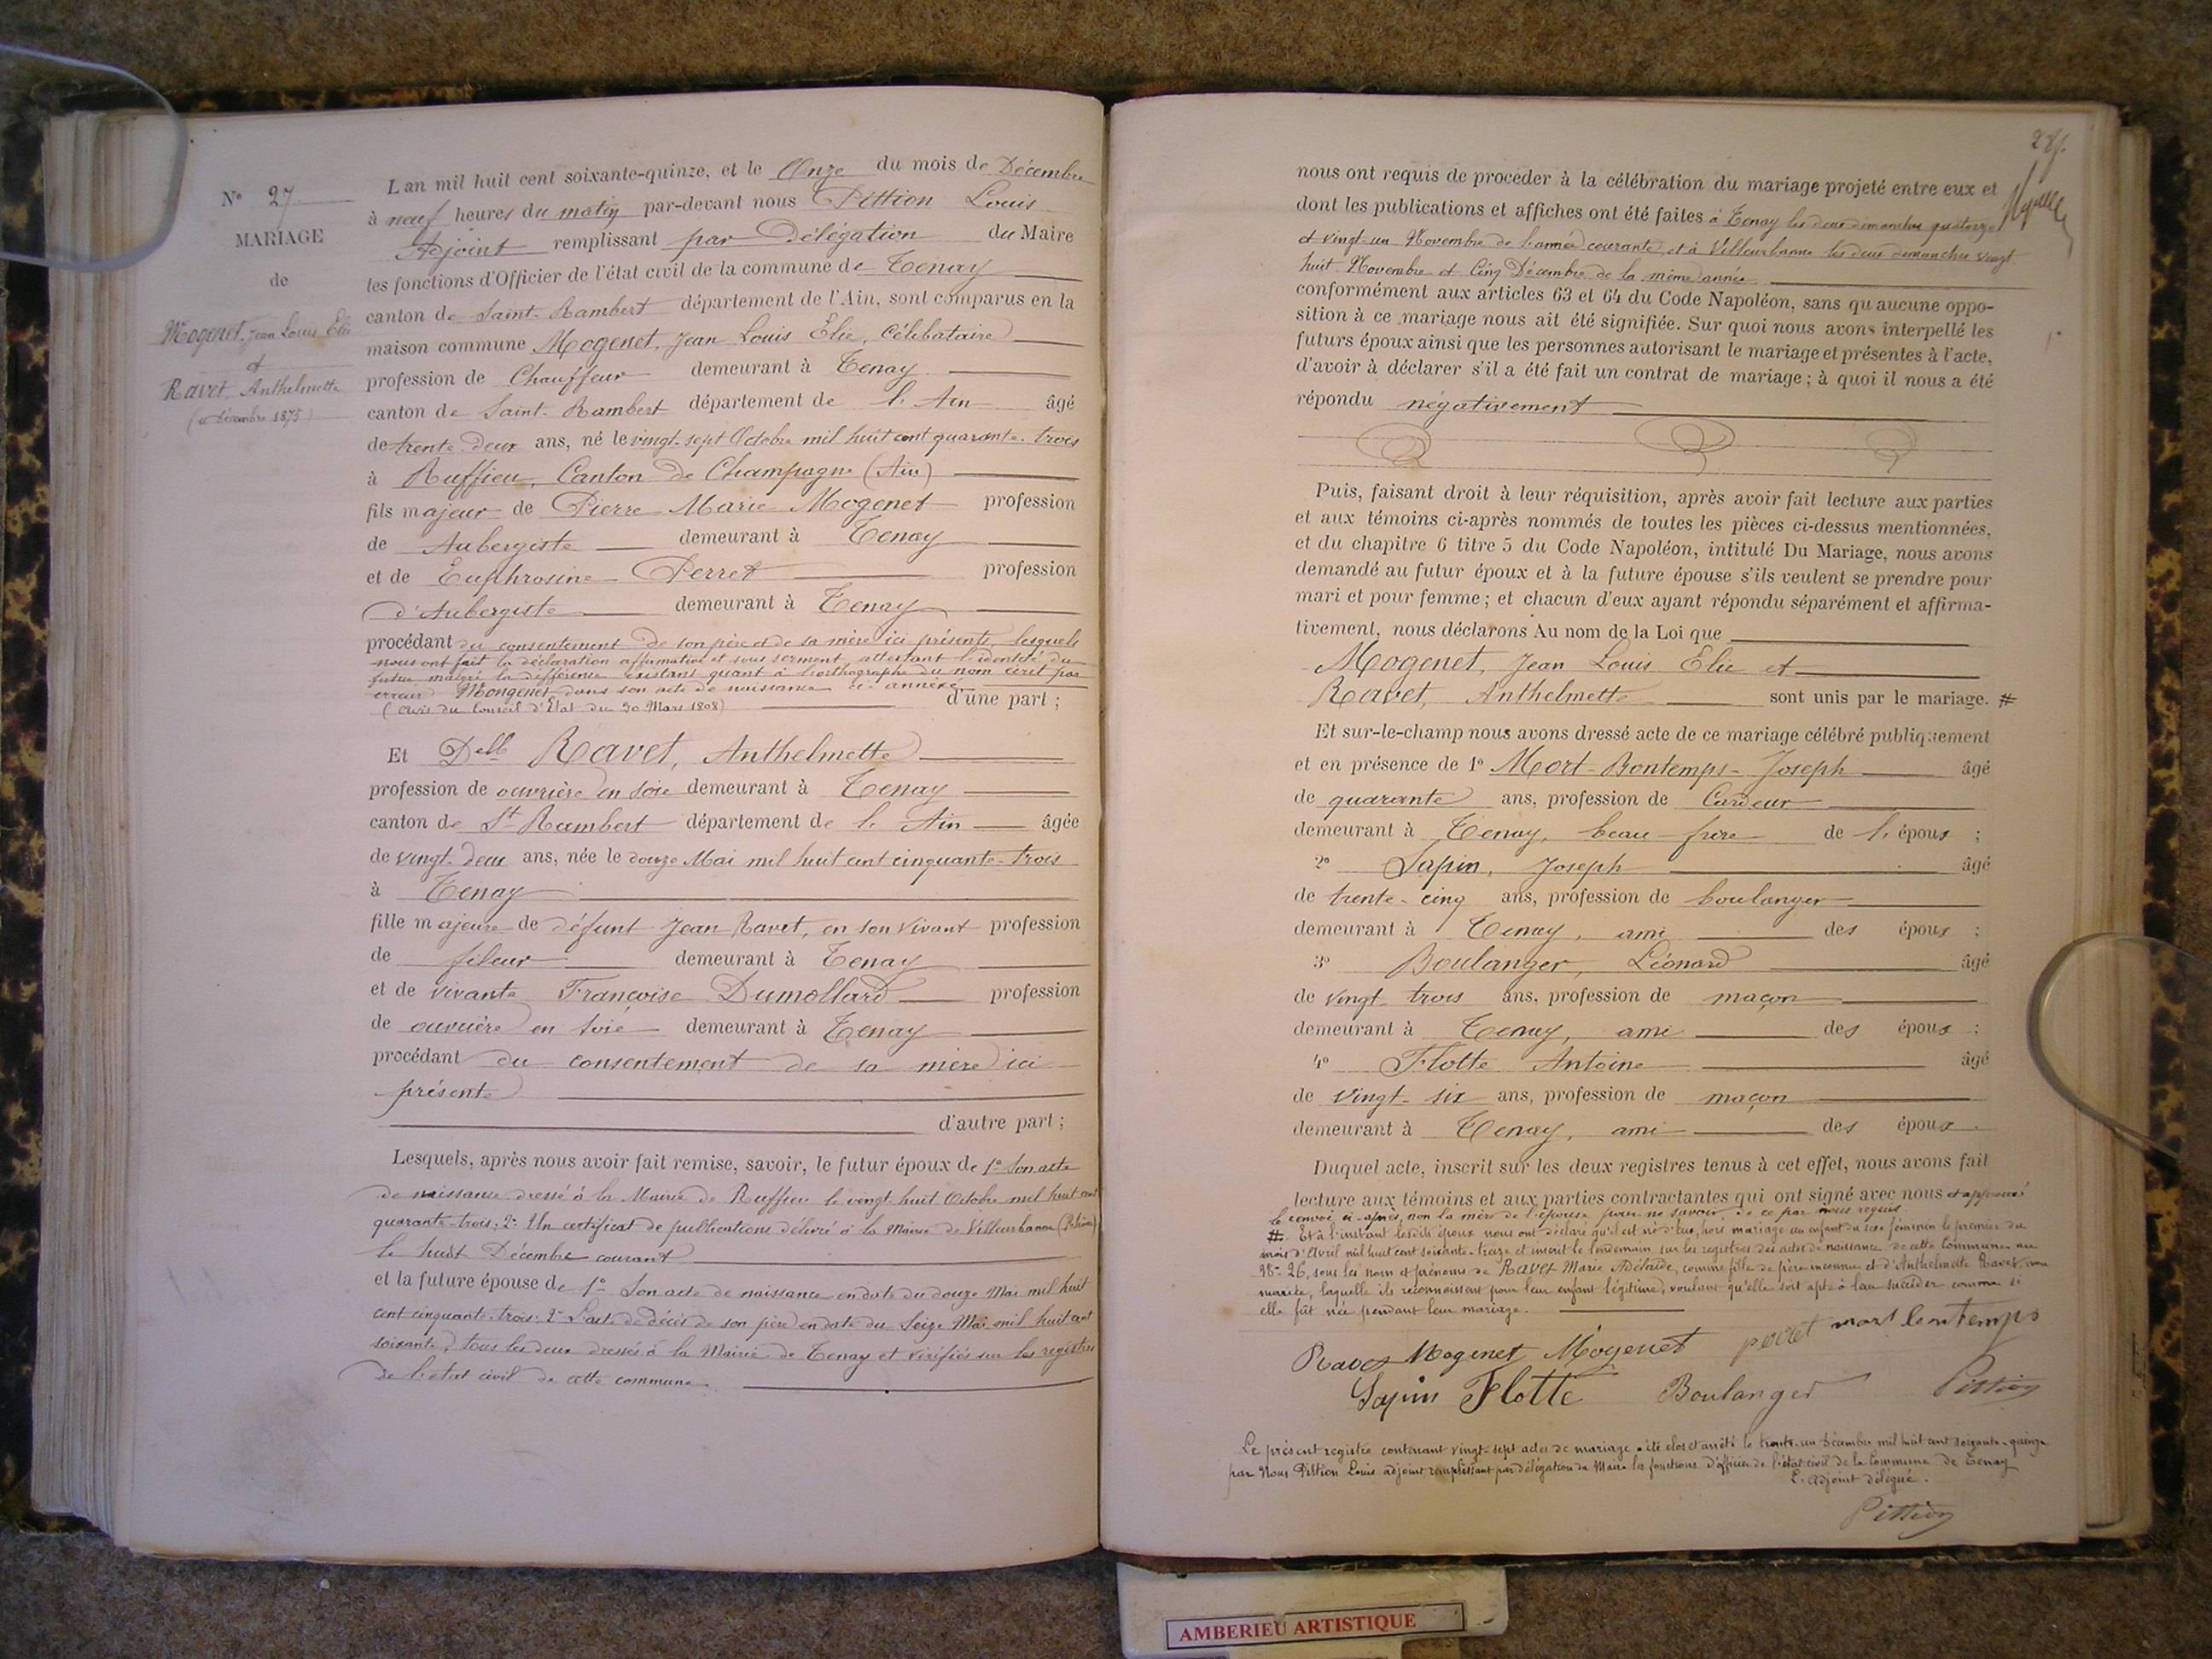 N° 27
MARIAGE
de
Mogenet, Jean Louis Elie
et
Ravet, Anthelmette
(11 Décembre 1875)
L'an mil huit cent soixante-quinze, et le Onze du mois de Décembre
à neuf heures du matin par-devant nous Pittion Louis
Adjoint remplissant par Délégation du Maire
les fonctions d'Officier de l'état civil de la commune de Tenay
canton de Saint-Rambert département de l'Ain, sont comparus en la
maison commune Mogenet, Jean Louis Elie, Célibataire
profession de Chauffeur demeurant à Tenay
canton de Saint-Rambert département de l'Ain âgé
de trente-deux ans, né le vingt-sept Octobre mil huit cent quarante-trois
à Ruffieu, Canton de Champagne (Ain)
fils majeur de Pierre Marie Mogenet profession
de Aubergiste demeurant à Tenay
et de Euphrosine Perret profession
d'Aubergiste demeurant à Tenay
procédant du consentement de son père et de sa mère ici présents, lesquels
nous ont fait la déclaration affirmative et sous serment, attestant l'identité du
futur malgré la différence existant quant à l'orthographe du nom écrit par
erreur Mongenet dans son acte de naissance ci-annexé
(avis du Conseil d'Etat du 30 Mars 1808) d'une part ;
Et Delle Ravet, Anthelmette
profession de ouvrière en soie demeurant à Tenay
canton de St Rambert département de l'Ain âgée
de vingt-deux ans, née le douze Mai mil huit cent cinquante-trois
à Tenay
fille majeure de défunt Jean Ravet, en son vivant profession
de fileur demeurant à Tenay
et de vivante Françoise Dumollard profession
de ouvrière en soie demeurant à Tenay
procédant du consentement de sa mère ici
présente
d'autre part ;
Lesquels, après nous avoir fait remise, savoir, le futur époux de 1° Son acte
de naissance dressé à la Mairie de Ruffieu le vingt-huit Octobre mil huit cent
quarante-trois; 2° Un certificat de publications délivré à la Mairie de Villeurbanne (Rhône)
le huit Décembre courant
et la future épouse de 1° Son acte de naissance en date du douze Mai mil huit
cent cinquante-trois; 2° L'acte de décès de son père en date du Seize Mai mil huit cent
soixante, tous les deux dressés à la Mairie de Tenay et vérifiés sur les registres
de l'état civil de cette commune.
28
nous ont requis de procéder à la célébration du mariage projeté entre eux et
dont les publications et affiches ont été faites à Tenay les deux dimanches quatorze
et vingt-un Novembre de l'année courante, et à Villeurbanne les deux dimanches vingt
huit Novembre et Cinq Décembre de la même année
conformément aux articles 63 et 64 du Code Napoléon, sans qu'aucune oppo-
sition à ce mariage nous ait été signifiée. Sur quoi nous avons interpellé les
futurs époux ainsi que les personnes autorisant le mariage et présentes à l'acte,
d'avoir à déclarer s'il a été fait un contrat de mariage ; à quoi il nous a été
répondu négativement
Puis, faisant droit à leur réquisition, après avoir fait lecture aux parties
et aux témoins ci-après nommés de toutes les pièces ci-dessus mentionnées,
et du chapitre 6 titre 5 du Code Napoléon, intitulé Du Mariage, nous avons
demandé au futur époux et à la future épouse s'ils veulent se prendre pour
mari et pour femme ; et chacun d'eux ayant répondu séparément et affirma-
tivement, nous déclarons Au nom de la Loi que
Mogenet, Jean Louis Elie et
Ravet, Anthelmette sont unis par le mariage. #
Et sur-le-champ nous avons dressé acte de ce mariage célébré publiquement
et en présence de 1° Mort-Bontemps-Joseph âgé
de quarante ans, profession de Cardeur
demeurant à Tenay, beau-frère de l'époux ;
2° Sapin, Joseph âgé
de trente-cinq ans, profession de boulanger
demeurant à Tenay, ami des époux ;
3° Boulanger, Léonard âgé
de vingt-trois ans, profession de maçon
demeurant à Tenay, ami des époux ;
4° Flotte Antoine âgé
de vingt-six ans, profession de maçon
demeurant à Tenay, ami des époux.
Duquel acte, inscrit sur les deux registres tenus à cet effet, nous avons fait
lecture aux témoins et aux parties contractantes qui ont signé avec nous et approuvé
le renvoi ci-après, non la mère de l'épouse pour ne savoir, de ce par nous requis
# Et à l'instant lesdits époux nous ont déclaré qu'il est né d'eux, hors mariage un enfant du sexe féminin le premier du
mois d'Avril mil huit cent soixante-treize et inscrit le lendemain sur les registres des actes de naissance de cette Commune au
N° 26, sous les nom et prénoms de Ravet Marie Adélaïde, comme fille de père inconnu et d'Anthelmette Ravet, non
mariée, laquelle ils reconnaissent pour leur enfant légitime, voulant qu'elle soit apte à leur succéder comme si
elle fût née pendant leur mariage.
Ravet Mogenet Mogenet perret mort bontemps
Sapin Flotte Boulanger Pittion
Le présent registre contenant vingt-sept actes de mariage a été clos et arrêté le trente-un Décembre mil huit cent soixante-quinze
par Nous Pittion Louis adjoint remplissant par délégation du Maire les fonctions d'officier de l'état civil de la Commune de Tenay
L'adjoint délégué.
Pittion
AMBERIEU ARTISTIQUE